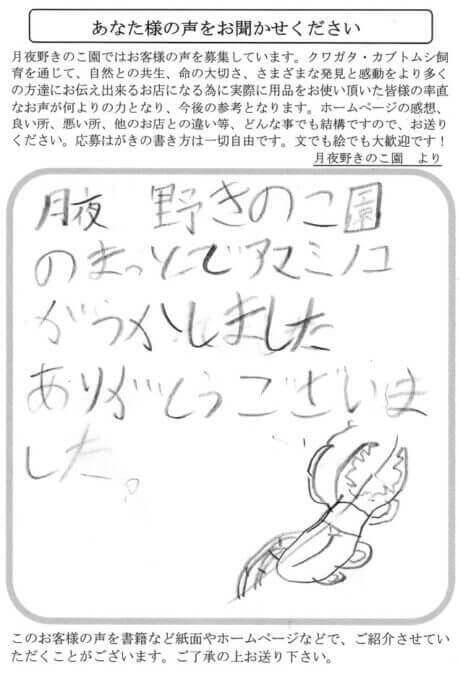 あなた様の声をお聞かせください
月夜野きのこ園ではお客様の声を募集しています。クワガタ・カブトムシ飼
育を通じて、自然との共生、命の大切さ、さまざまな発見と感動をより多く
の方達にお伝え出来るお店になる為に実際に用品をお使い頂いた皆様の率直
なお声が何よりの力となり、今後の参考となります。ホームページの感想、
良い所、悪い所、他のお店との違い等、どんな事でも結構ですので、お送り
ください。応募はがきの書き方は一切自由です。文でも絵でも大歓迎です！
月夜野きのこ園　より
月夜 野きのこ園
のまっとでアマミノコ
がうかしました
ありがとうございま
した。
このお客様の声を書籍など紙面やホームページなどで、ご紹介させてい
ただくことがございます。ご了承の上お送り下さい。